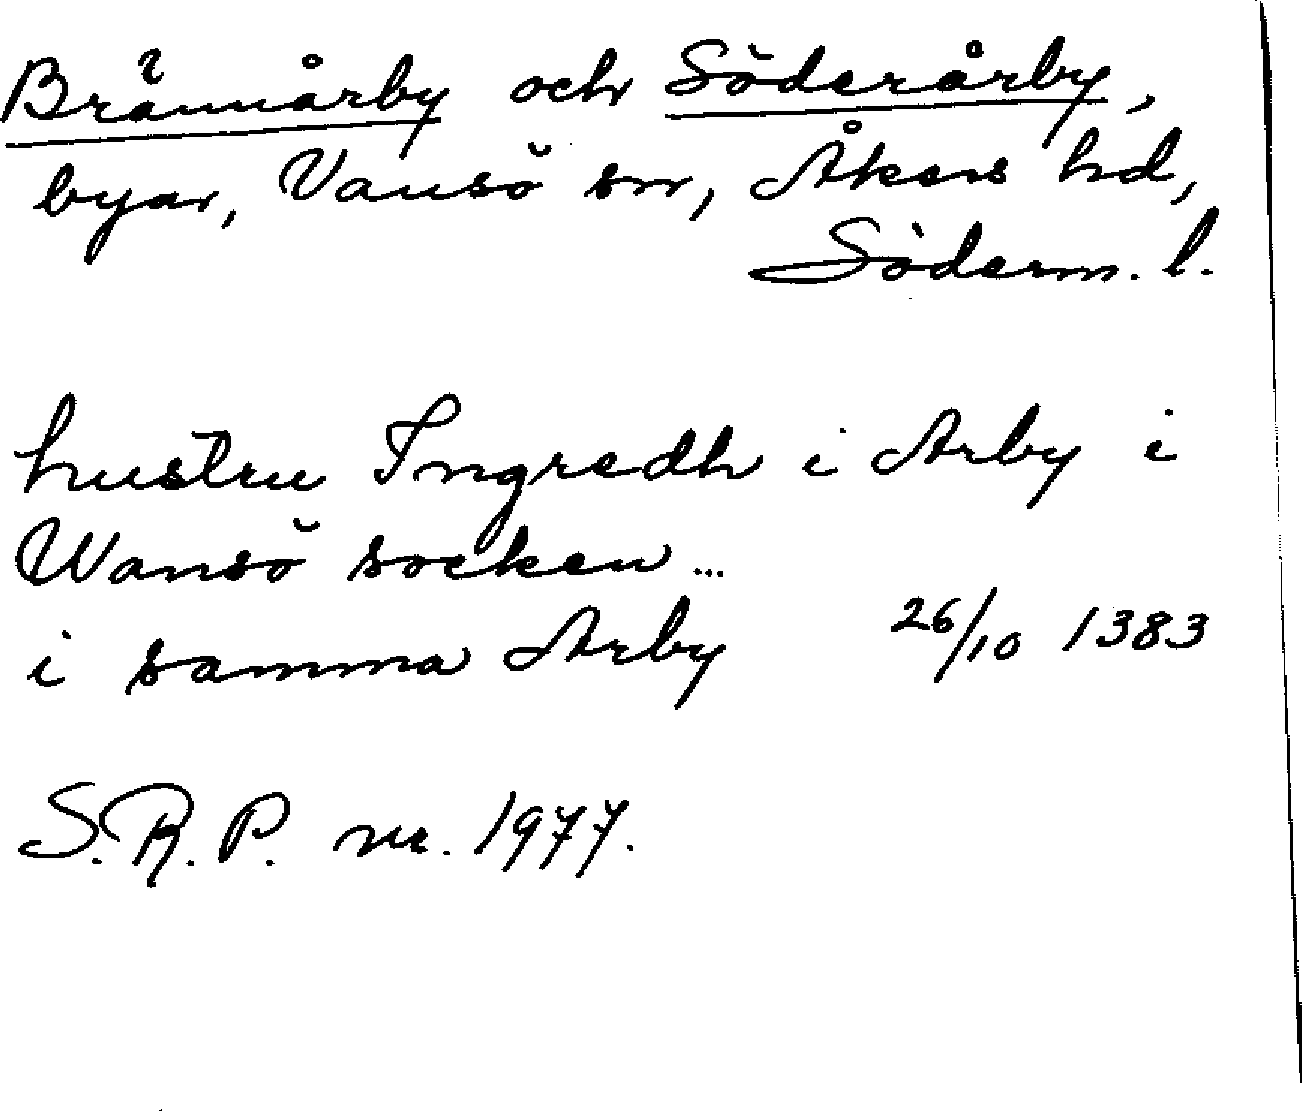 Brännårby och Söderårby,
byar, Vansö sn, Åkers hd,
Söderm. l.
hustru Ingredh i Arby i
Wansö socken ...
i samma Arby 26/10 1383
S.R.P. nr. 1977.